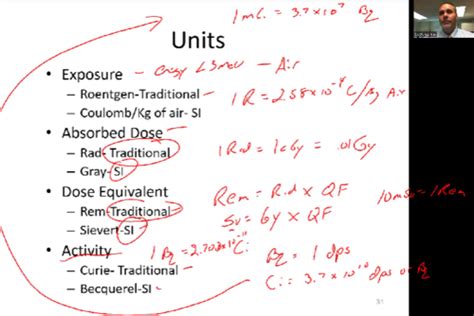 1 mCi = 3.7 x 10⁷ Bq
Units
• Exposure – Energy < 3 MeV – Air
– Roentgen-Traditional
1 R = 2.58 x 10⁻⁴ C/Kg Air
– Coulomb/Kg of air- SI
• Absorbed Dose
– Rad- Traditional
1 Rad = 1 cGy = .01 Gy
– Gray-SI
• Dose Equivalent
Rem = Rad x QF
10 mSv = 1 Rem
– Rem-Traditional
Sv = Gy x QF
– Sievert-SI
• Activity
1 Bq = 2.703 x 10⁻¹¹ Ci
Bq = 1 dps
– Curie- Traditional
Ci = 3.7 x 10¹⁰ dps or Bq
– Becquerel-SI